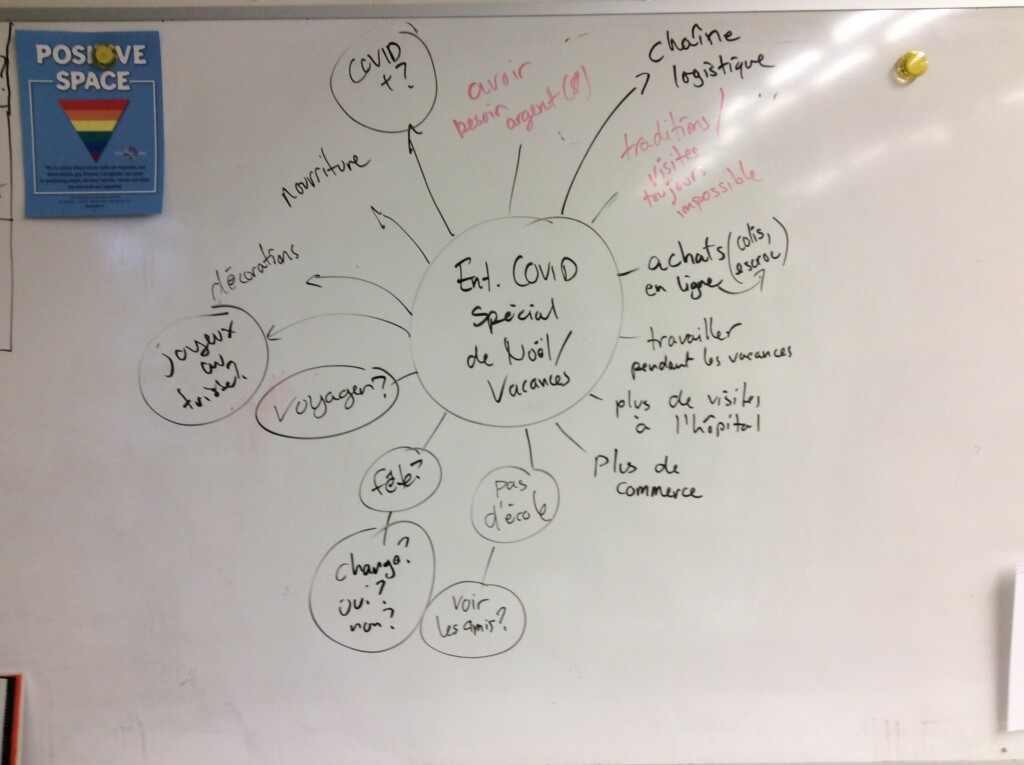 POSITIVE
SPACE
COVID
+?
avoir
besoin
argent($)
chaîne
logistique
traditions/
visites
toujours
impossible
nourriture
décorations
joyeux
ou
triste?
voyager?
Ent. COVID
spécial
de Noël/
Vacances
achats (colis,
en ligne escroc)
travailler
pendant les vacances
plus de visites
à l'hôpital
Plus de
commerce
fête?
change?
oui?
non?
pas
d'école
voir
les amis?